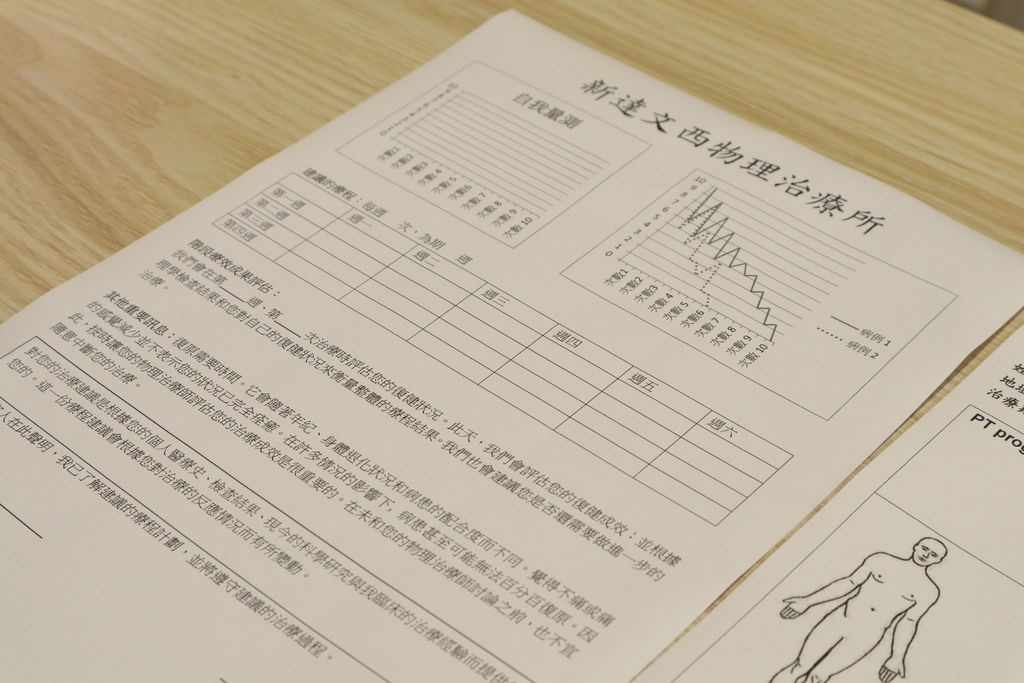 新達文西物理治療所
自我量測
10
9
8
7
6
5
4
3
2
1
0
次數1
次數2
次數3
次數4
次數5
次數6
次數7
次數8
次數9
次數10
10
9
8
7
6
5
4
3
2
1
0
次數1
次數2
次數3
次數4
次數5
次數6
次數7
次數8
次數9
次數10
病例1
病例2
建議的療程：每週 次，為期 週
週一 週二 週三 週四 週五 週六
第一週
第二週
第三週
第四週
階段療效成果評估：
我們會在第 週，第 次治療時評估您的復健狀況。此天，我們會評估您的復健成效；並根據
理學檢查結果和您對自己的復健狀況來衡量整體的療程結果。我們也會建議您是否還需要做進一步的
治療。
其他重要訊息：復原需要時間。它會隨著年紀、身體退化狀況和病患的配合度而不同。覺得不痛或痛
的感覺減少並不表示您的狀況已完全痊癒。在許多情況的影響下，病患甚至可能無法百分百復原。因
此，按時讓您的物理治療師評估您的治療成效是很重要的。在未和您的物理治療師討論之前，也不宜
隨意中斷您的治療。
對您的治療建議是根據您的個人醫療史、檢查結果、現今的科學研究與我臨床的治療經驗而提供
您的。這一份療程建議會根據您對治療的反應情況而有所變動。
人在此聲明，我已了解建議的療程計劃，並將遵守建議的治療過程。
地
治療
PT prog